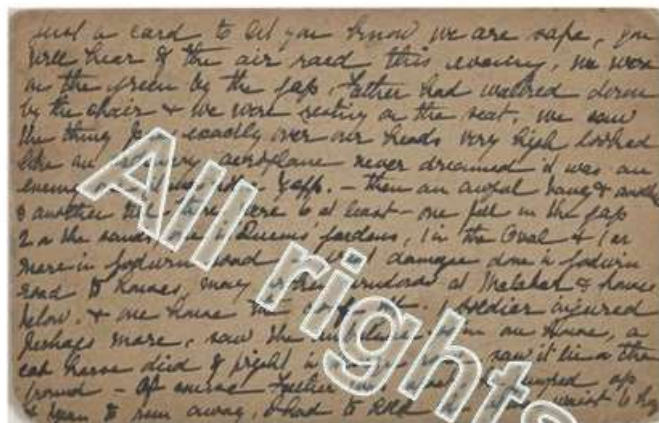 just a card to let you know we are safe, you
will hear of the air raid this evening, we were
on the green by the gap, Father had walked down
by the chair & we were resting on the seat, we saw
the thing exactly over our heads very high looked
like an ordinary aeroplane never dreamed it was an
enemy gaff. - then an awful bang & another
& another till there were 6 at least - one fell in the gap
2 on the sands, one in Queens' Gardens, 1 in the Oval & 1 or
more in Godwin road damage done in Godwin
road to houses, many windows at & houses
below, & one house 1 soldier injured
perhaps more, saw the our House, a
cab horse died of fright in saw it lie on the
ground - Of course Father jumped up
& began to run away, I had to hold waist to
All rights